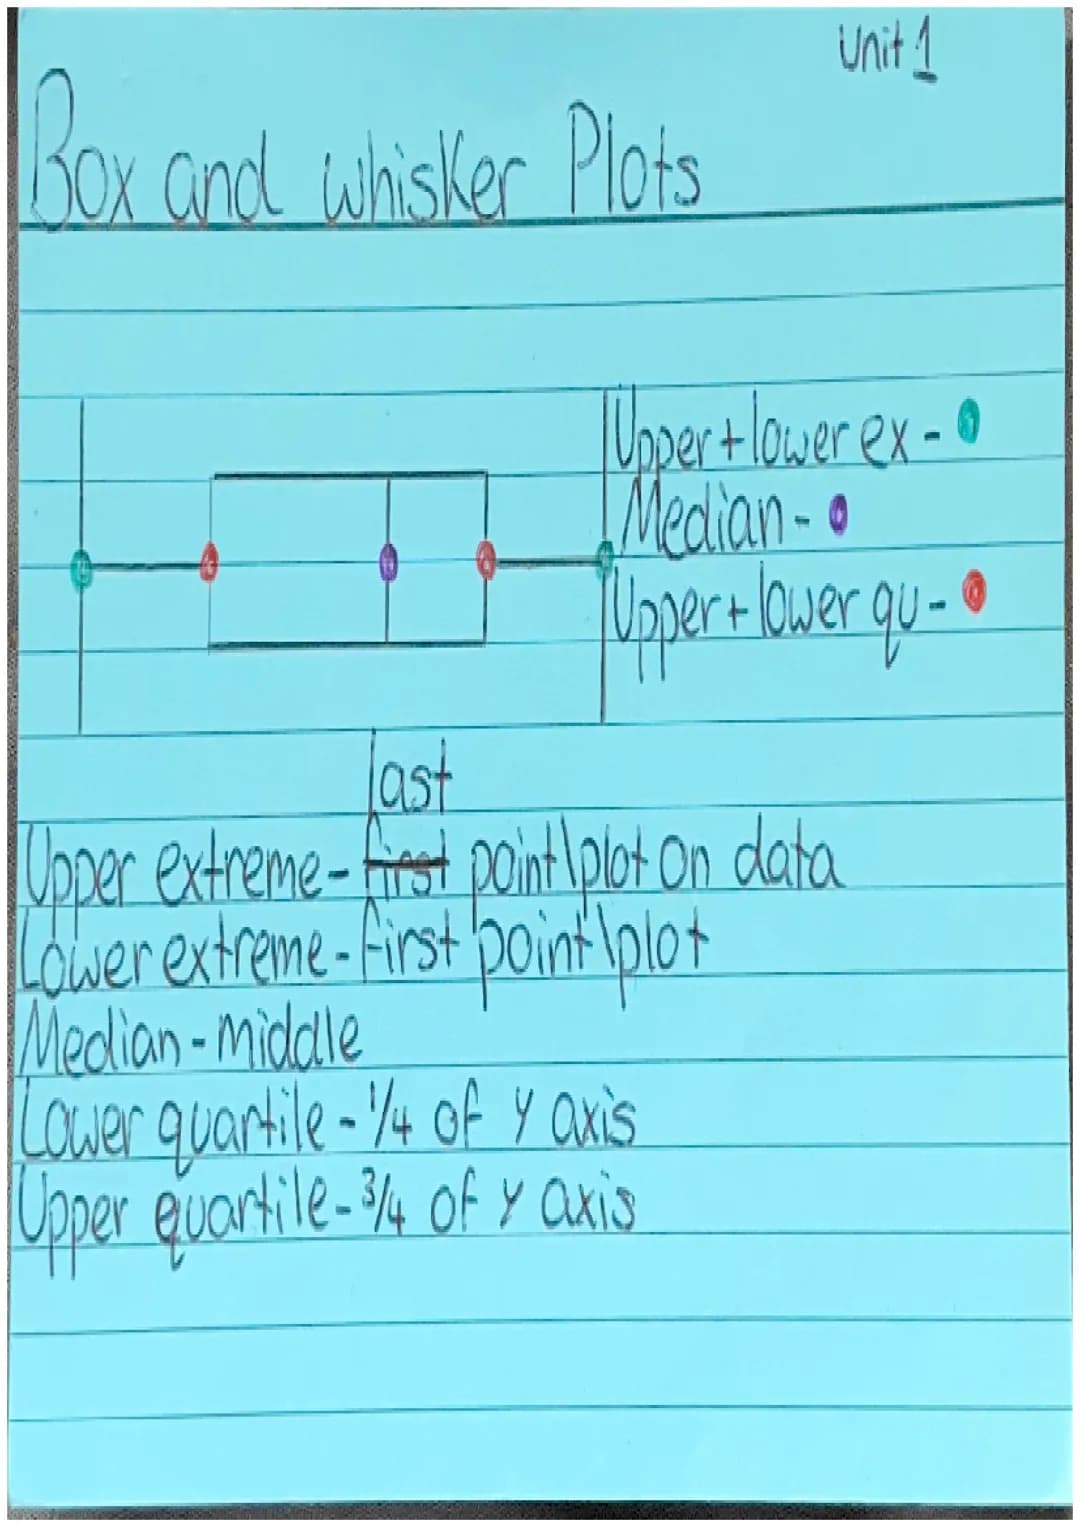 Unit 1
Box and whisker Plots
Upper + lower ex -
Median -
Upper + lower qu -
last
Upper extreme - first point\plot on data
Lower extreme - first point\plot
Median - middle
Lower quartile - 1/4 of y axis
Upper quartile - 3/4 of y axis